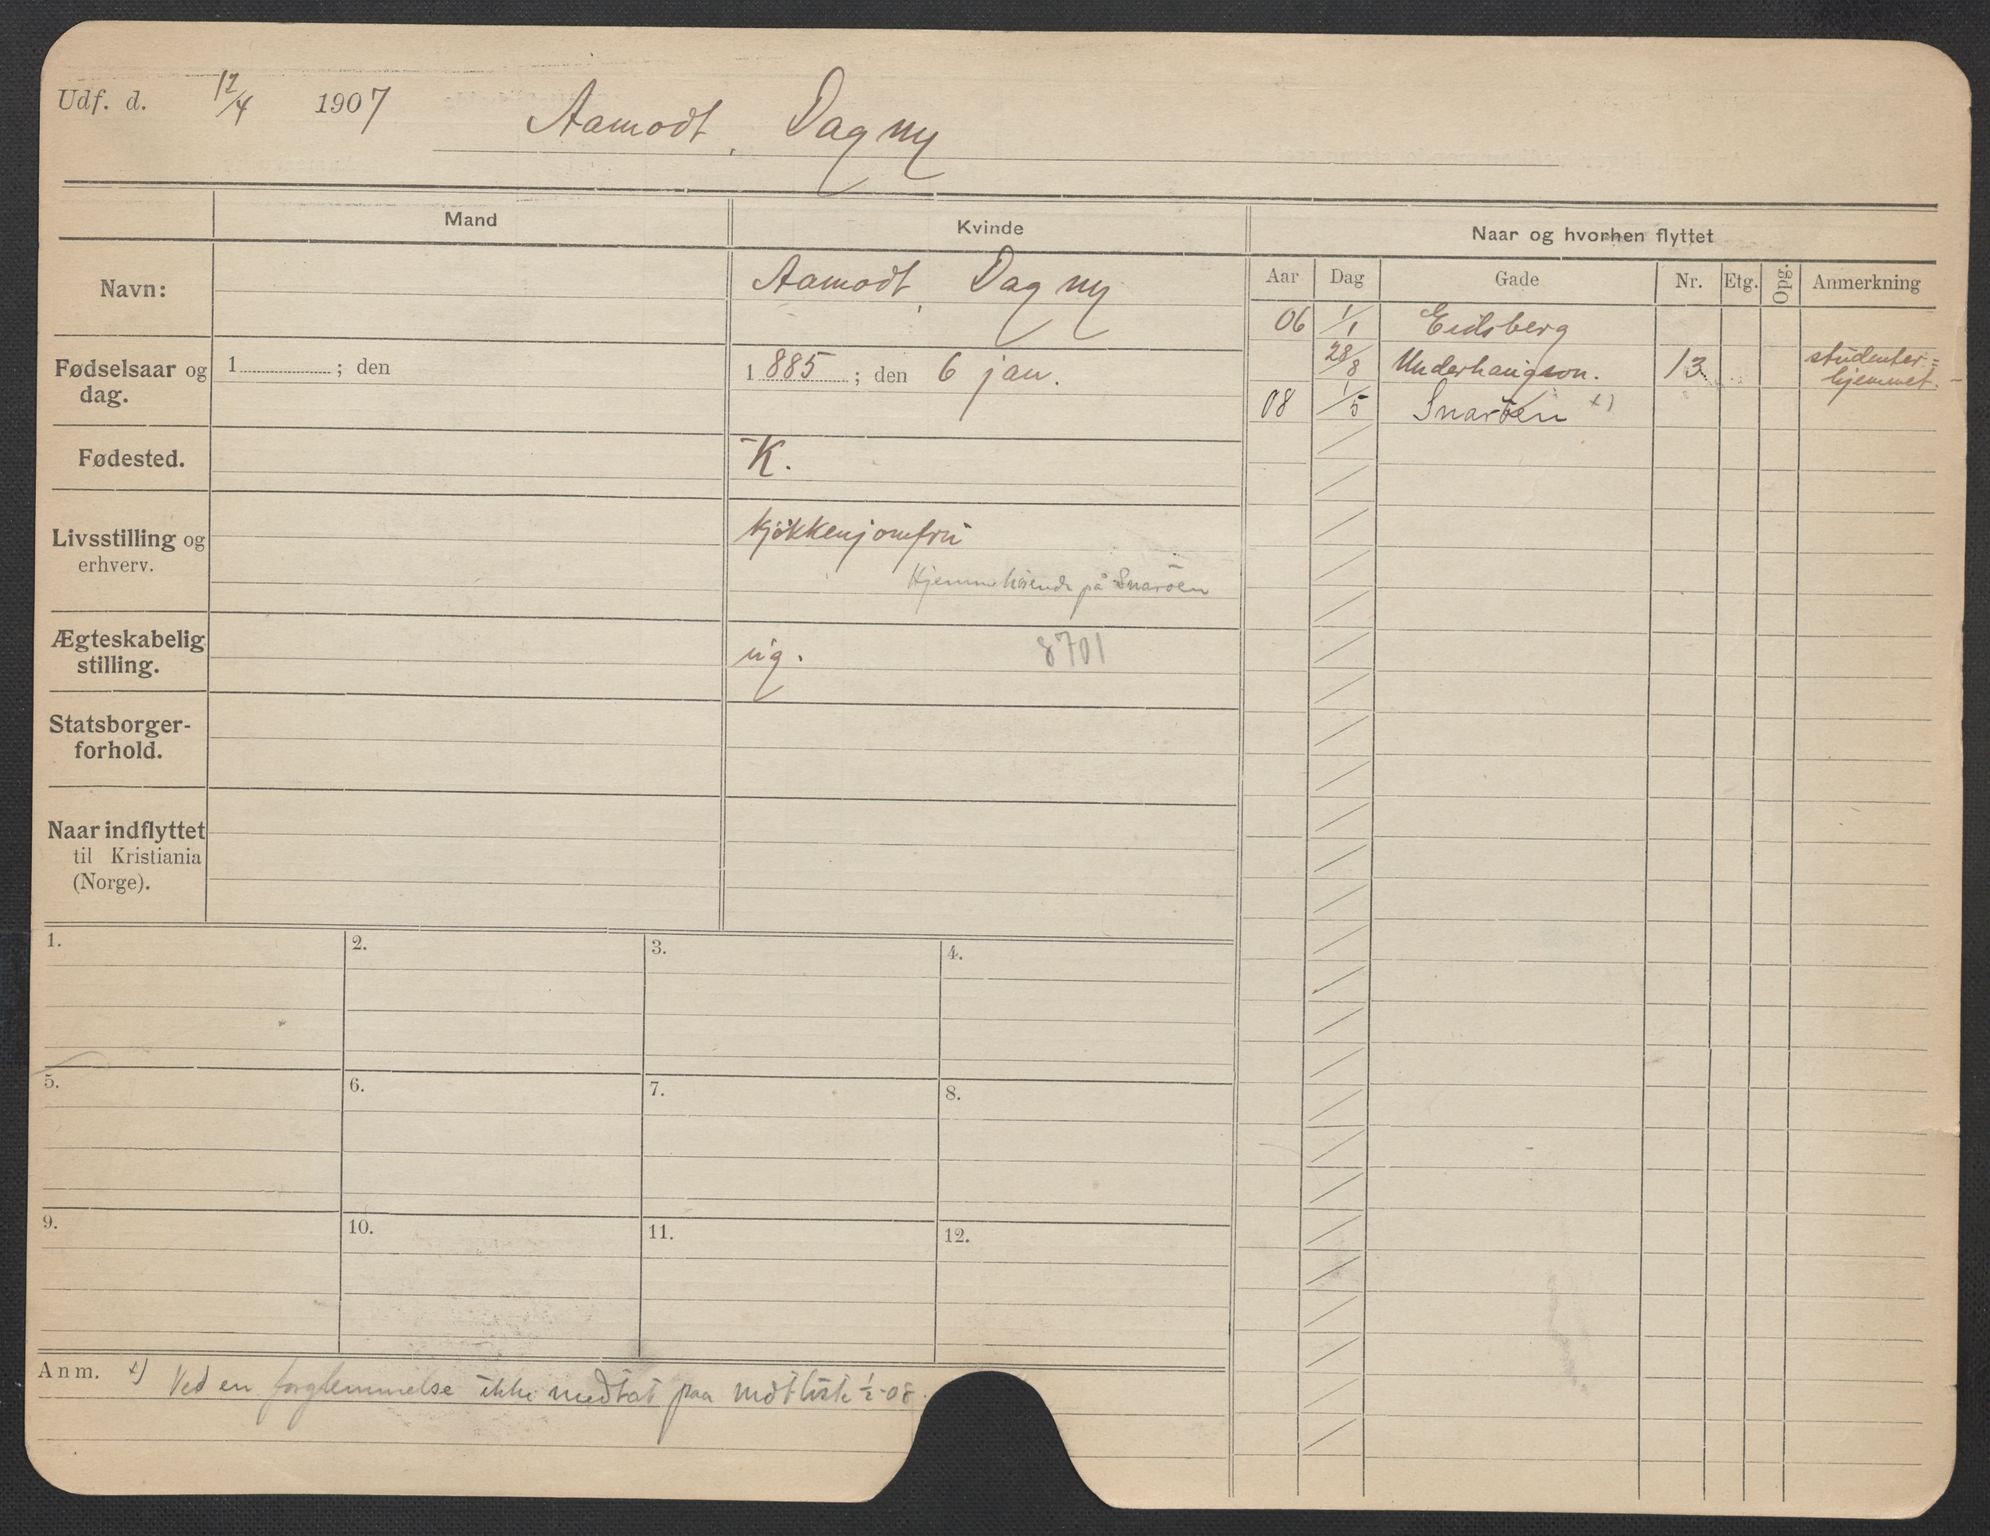 Udf. d. 12/4 1907 Aamodt, Dagny
Mand
Kvinde
Naar og hvorhen flyttet
Navn:
Aamodt, Dagny
Aar Dag Gade Nr. Etg. Opg. Anmerkning
06 1/1 Eidsberg
28/8 Underhaugsvn. 13 studenter=
hjemmet.
08 1/5 Snaröen x)
Fødselsaar og
dag.
1 ; den
1885 ; den 6 jan.
Fødested.
K.
Livsstilling og
erhverv.
kjøkkenjomfru
Hjemmehörende på Snaröen
Ægteskabelig
stilling.
ug.
8701
Statsborger-
forhold.
Naar indflyttet
til Kristiania
(Norge).
1. 2. 3. 4.
5. 6. 7. 8.
9. 10. 11. 12.
Anm. x) Ved en forglemmelse ikke medtat paa mdtliste 1/2-08.